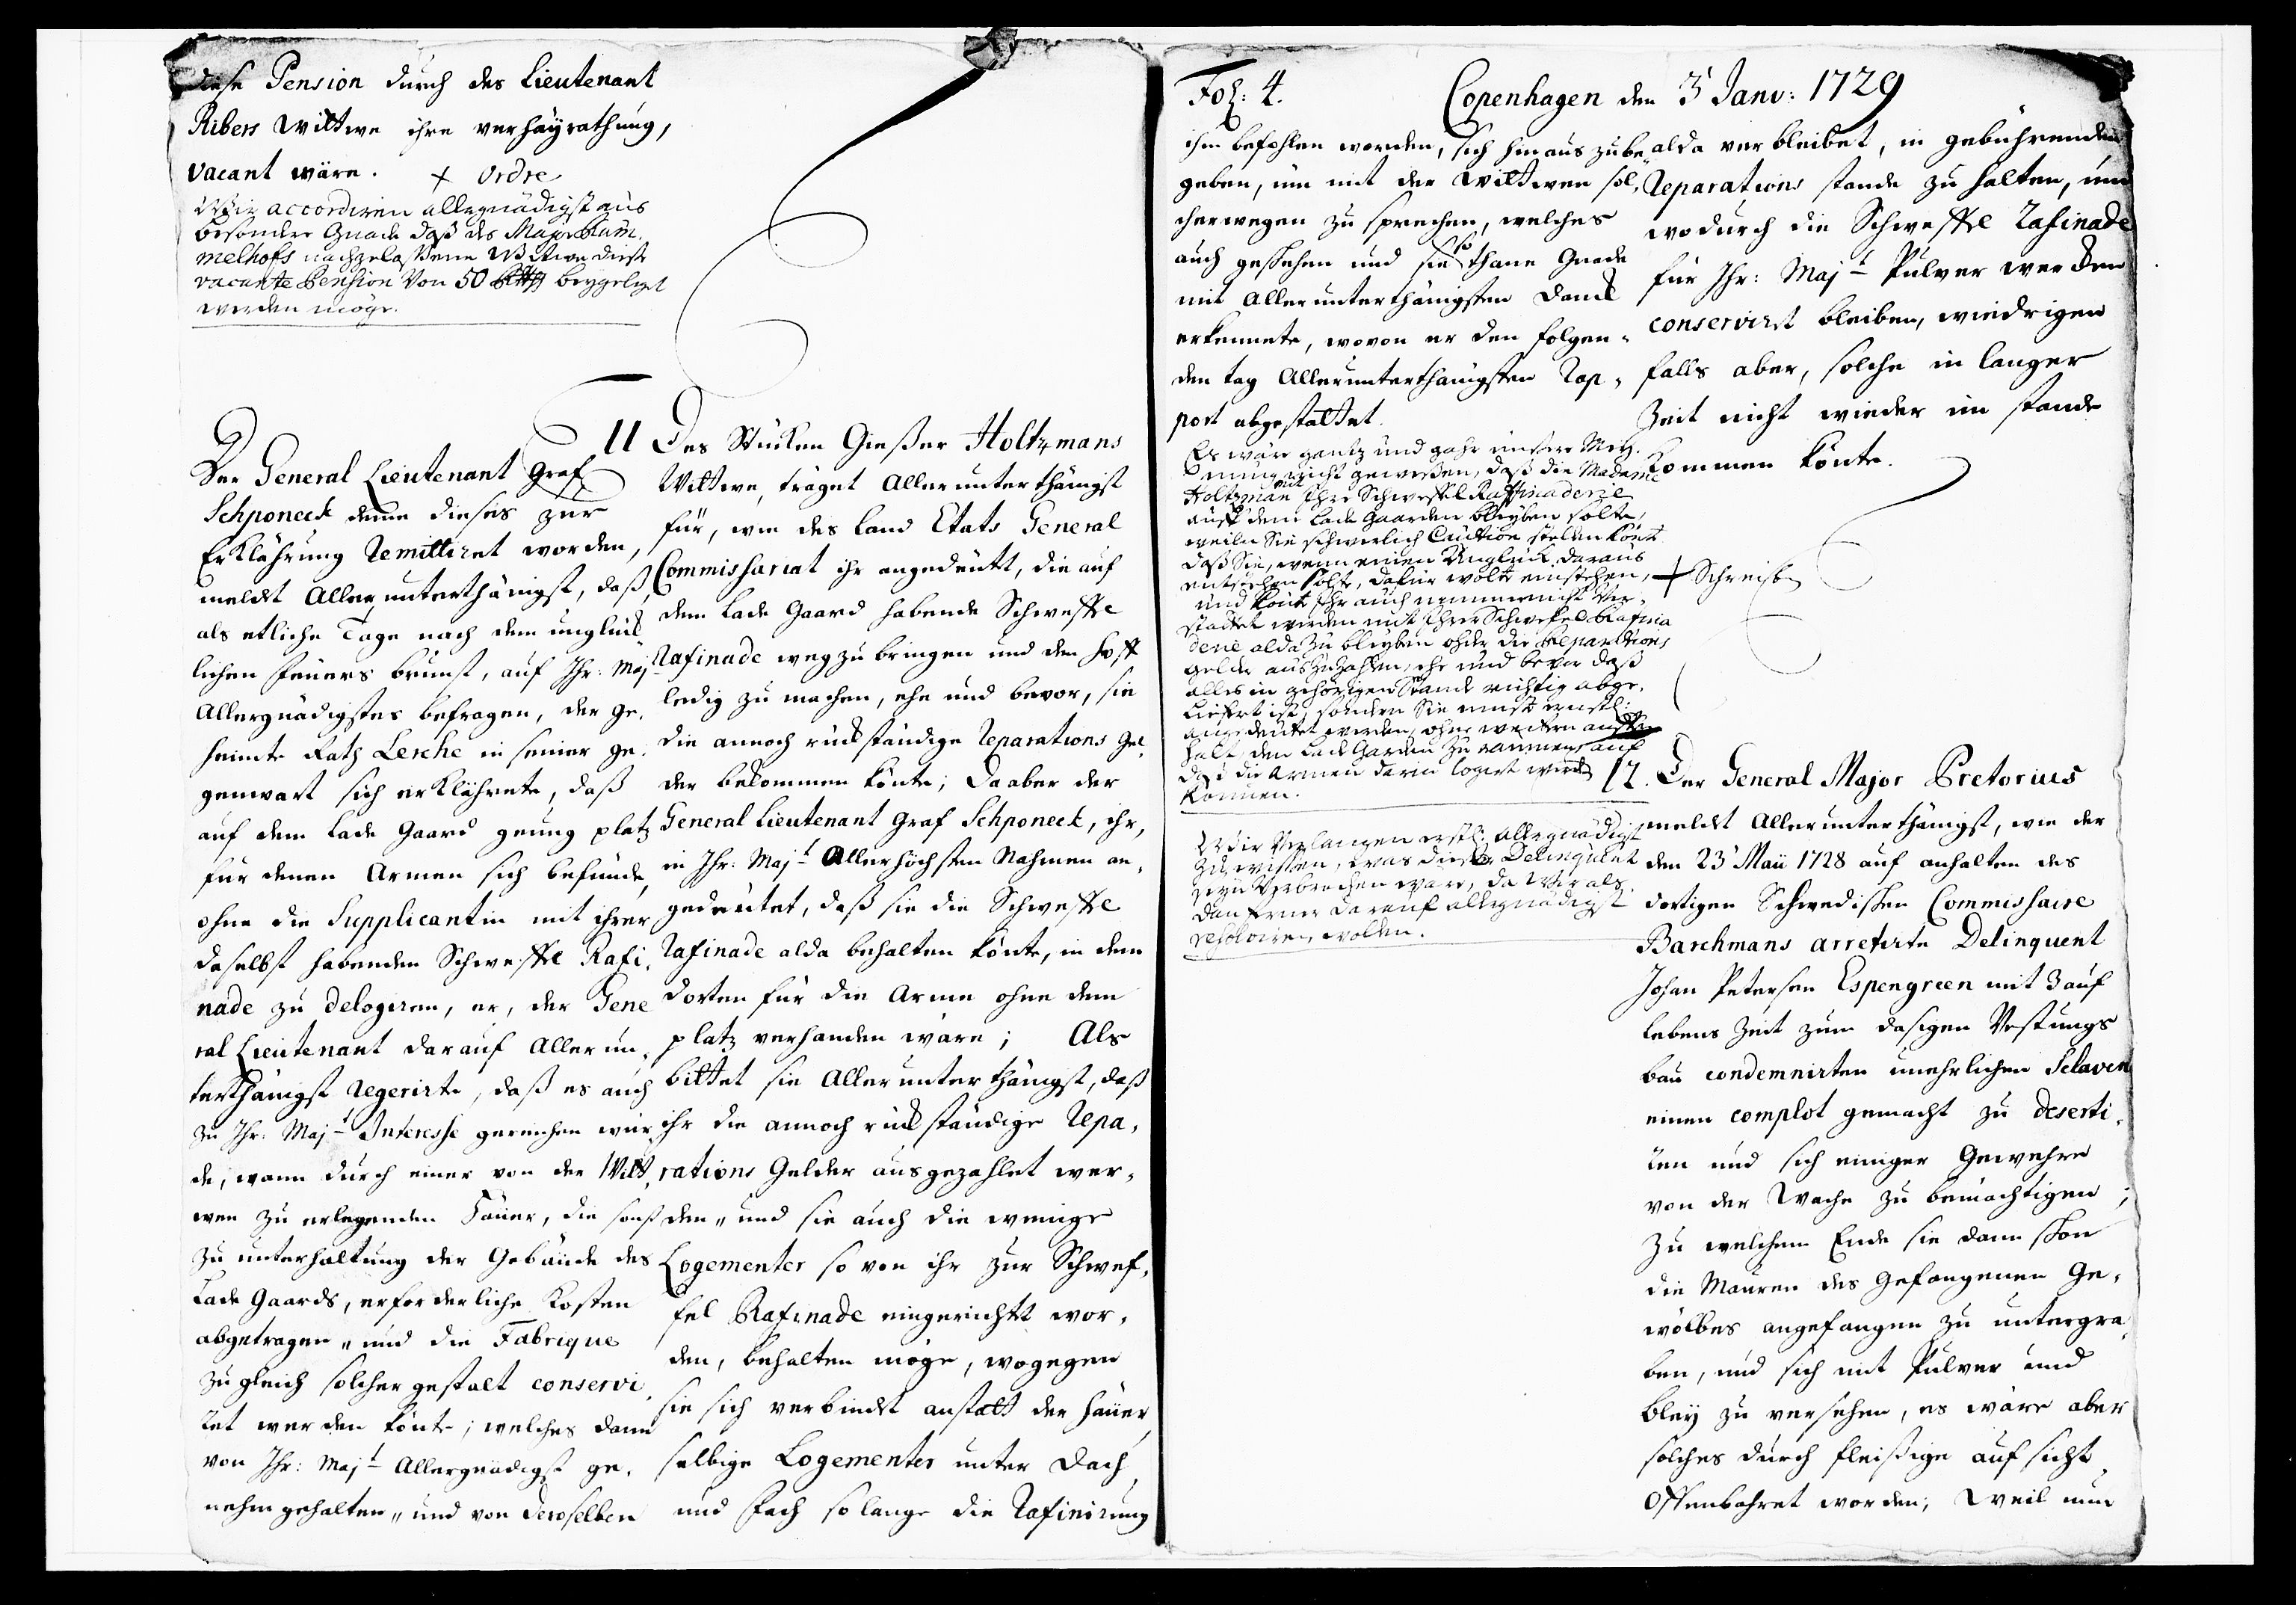 diese Pension durch des Lieutenant
Ribers Wittwe ihre verhäyrathung,
vacant wäre. + Ordre
Wir accordiren allergnädigst aus
besonder Gnade daß des Major
melhofs nachgelassene Wittwe diese
vacante Pension von 50 beygeleget
werden möge.
Der General Lieutenant Graf
Schponeck deme dieses zur
Erklährung Remittiret worden,
meldet Allerunterthänigst, daß,
als etliche Tage nach dem unglück
lichen feuers brunst, auf Ihr: Majt
Allergnädigstes befragen, der ge,
heimte Rath Lerche in seiner ge,
genwart sich erklährete, daß
auf dem Lade Gaard genug platz
für denen Armen sich befünde,
ohne die Supplicantin mit ihrer
daselbst habenden Schweffel Rafi,
nade zu delogiren, er, der Gene
ral Lieutenant darauf Allerun,
terthänigst regerirte, daß es auch
zu Ihr: Majt Interesse gereichen wür,
de, wann durch einer von der Witt,
wen zu erlegenden Häuer, die sonst
zu unterhaltung der Gebäude des
Lade Gaards, erforderliche Kosten
abgetragen, und die Fabrique
zugleich solcher gestalt conservi,
ret werden könte; welches dann
von Ihr: Majt Allergnädigst ge,
nehm gehalten, und von deroselben
11 Des Stücken Gießer Holtzmans
Wittwe, träget Allerunterthänigst
für, wie des Land Etats General
Commissariat ihr angedeutt, die auf
dem Lade Gaard habende Schweffel
Rafinade wegzubringen und den Hoff
ledig zu machen, ehe und bevor, sie
die annoch rückständige Reparations Gel,
der bekommen könte; Da aber der
General Lieutenant Graf Schponeck, ihr,
in Ihr: Majt Allerhöchsten Nahmen an,
gedeutet, daß sie die Schweffel
Rafinade alda behalten könte, in dem
dorten für die Arme ohne dem
platz verhanden wäre; Als
bittet sie Allerunterthänigst, daß
ihr die annoch rückständige Repa,
rations Gelder ausgezahlet wer,
den, und sie auch die wenige
Logementer so von ihr zur Schwef,
fel Rafinade eingerichtet wor,
den, behalten möge, wogegen
sie sich verbindet anstatt der häuer,
selbige Logementer unter Dach
und Fach so lange die Rafinirung
Fol: 4. Copenhagen den 3 Janv: 1729
ihm befohlen worden, sich hinaus zube,
geben, um mit der Wittwen sol,
cherwegen zu sprechen, welches
auch geschehen und sie so thane Gnade
mit Allerunterthänigsten Danck
erkennete, wovon er den folgen,
den tag Allerunterthänigsten Rap,
port abgestattet.
Es wäre gantz und gahr unsere Mey,
nung nicht gewesen, daß die Madame
Holtzman mit Ihre Schweffel Raffinaderie
auff dem Lade Gaarden bleyben solte,
weiln Sie schwerlich Caution stellen könt
daß Sie, wenn einen Unglück daraus
entstehen solte, dafür wolte einstehen,
und könte Ihr auch nimmer nicht ver,
stattet werden mit Ihrer Schwefel Rafina
derie alda zu bleyben oder die Reparations
gelder auszuzahlen, ehe und bevor daß
alles in gehörigen Stande richtig abge,
liefert ist, sondern Sie muste ernstl:
angedeutet werden, ohne weitern auffent
halt den Lade Garden zu räumen, auf
daß die Armen darin logirt werden
können.
Wir Verlangen erstl: allergnädigst
zu wissen, was dieser Delinquent
sein Verbrechen wäre, da Wir als,
dan ferner darauf allergnädigst
resolviren wollen.
alda verbleibet, in gebührenden
Reparations stande zu halten, um
wodurch die Schweffel Rafinade
für Ihr: Majt Pulver werden
conserviret bleiben, wiedrigen
falls aber, solche in langer
Zeit nicht wieder im stande
kommen könte.
+ Schreiben
12. Der General Major Pretorius
meldet Allerunterthänigst, wie der
den 23 Maii 1728 auf anhalten des
dortigen Schwedischen Commissaire
Barchmans arretirte Delinquent
Johan Petersen Espengreen mit 3 auf
lebens Zeit zum dasigen Vestungs
bau condemnirten unehrlichen Sclaven
einen complot gemacht zu deserti,
ren und sich einiger Gewehre
von der Wache zu bemächtigen;
zu welchem Ende sie dann schon
die Mauren des Gefangenen Ge,
wölbes angefangen zu untergra,
ben, und sich mit Pulver und
Bley zu versehen, es wäre aber
solches durch fleißige aufsicht
Offenbahret worden; Weil nun